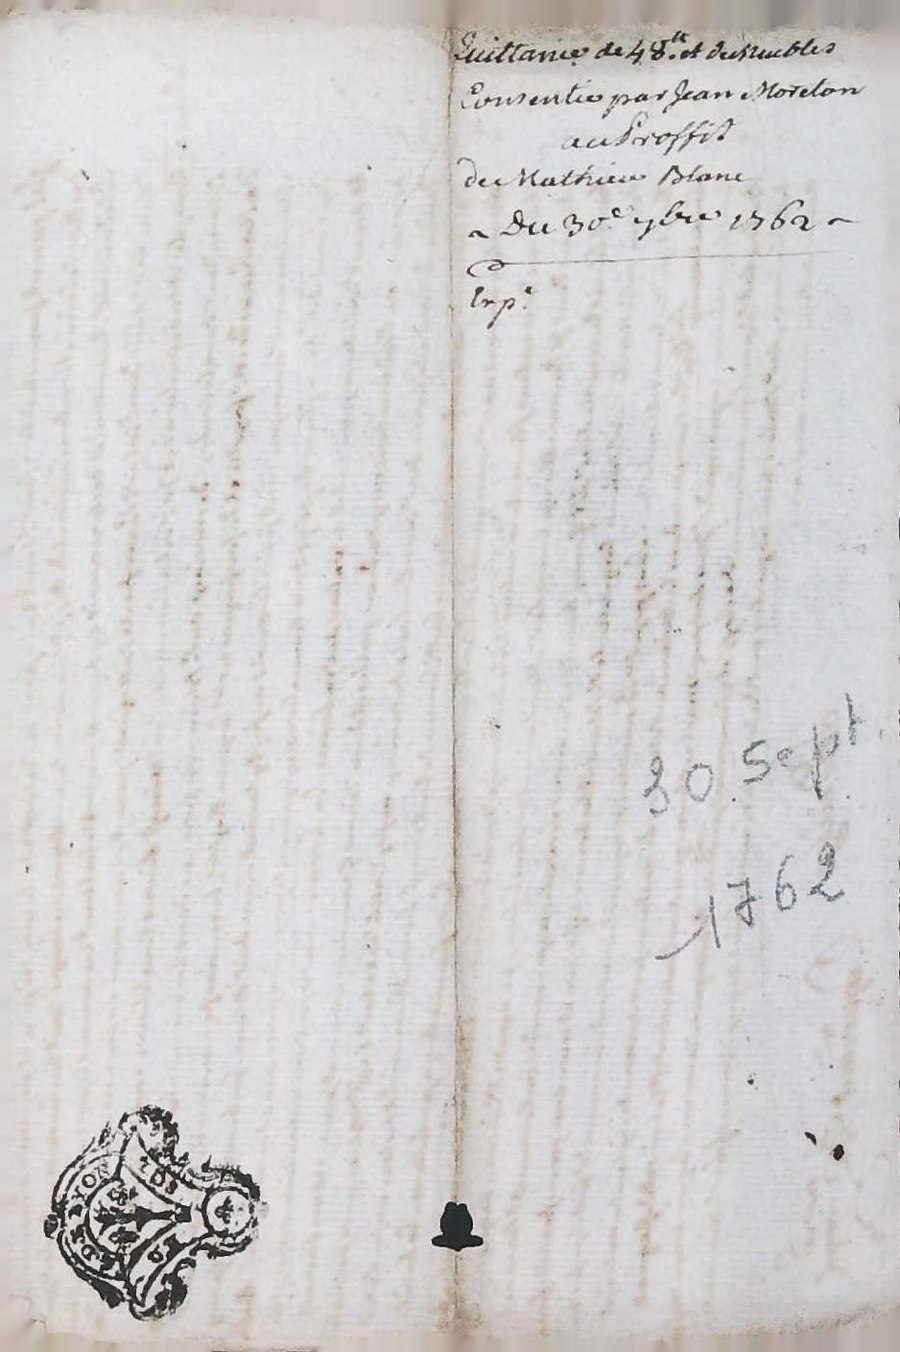 Quittance de 48.tt et de Meubles
Consentie par Jean Morelon
au Proffit
de Mathieu Blanc
~ Du 30e. 7bre 1762 ~
Exp.e
30 Sept.
1762
DE LYON